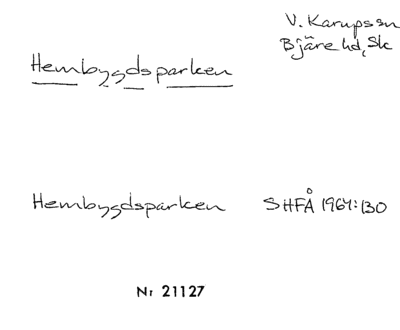 V. Karupssn
Bjäre hd, Sk
Hembygdsparken
Hembygdsparken SHFÅ 1964:130
Nr 21127